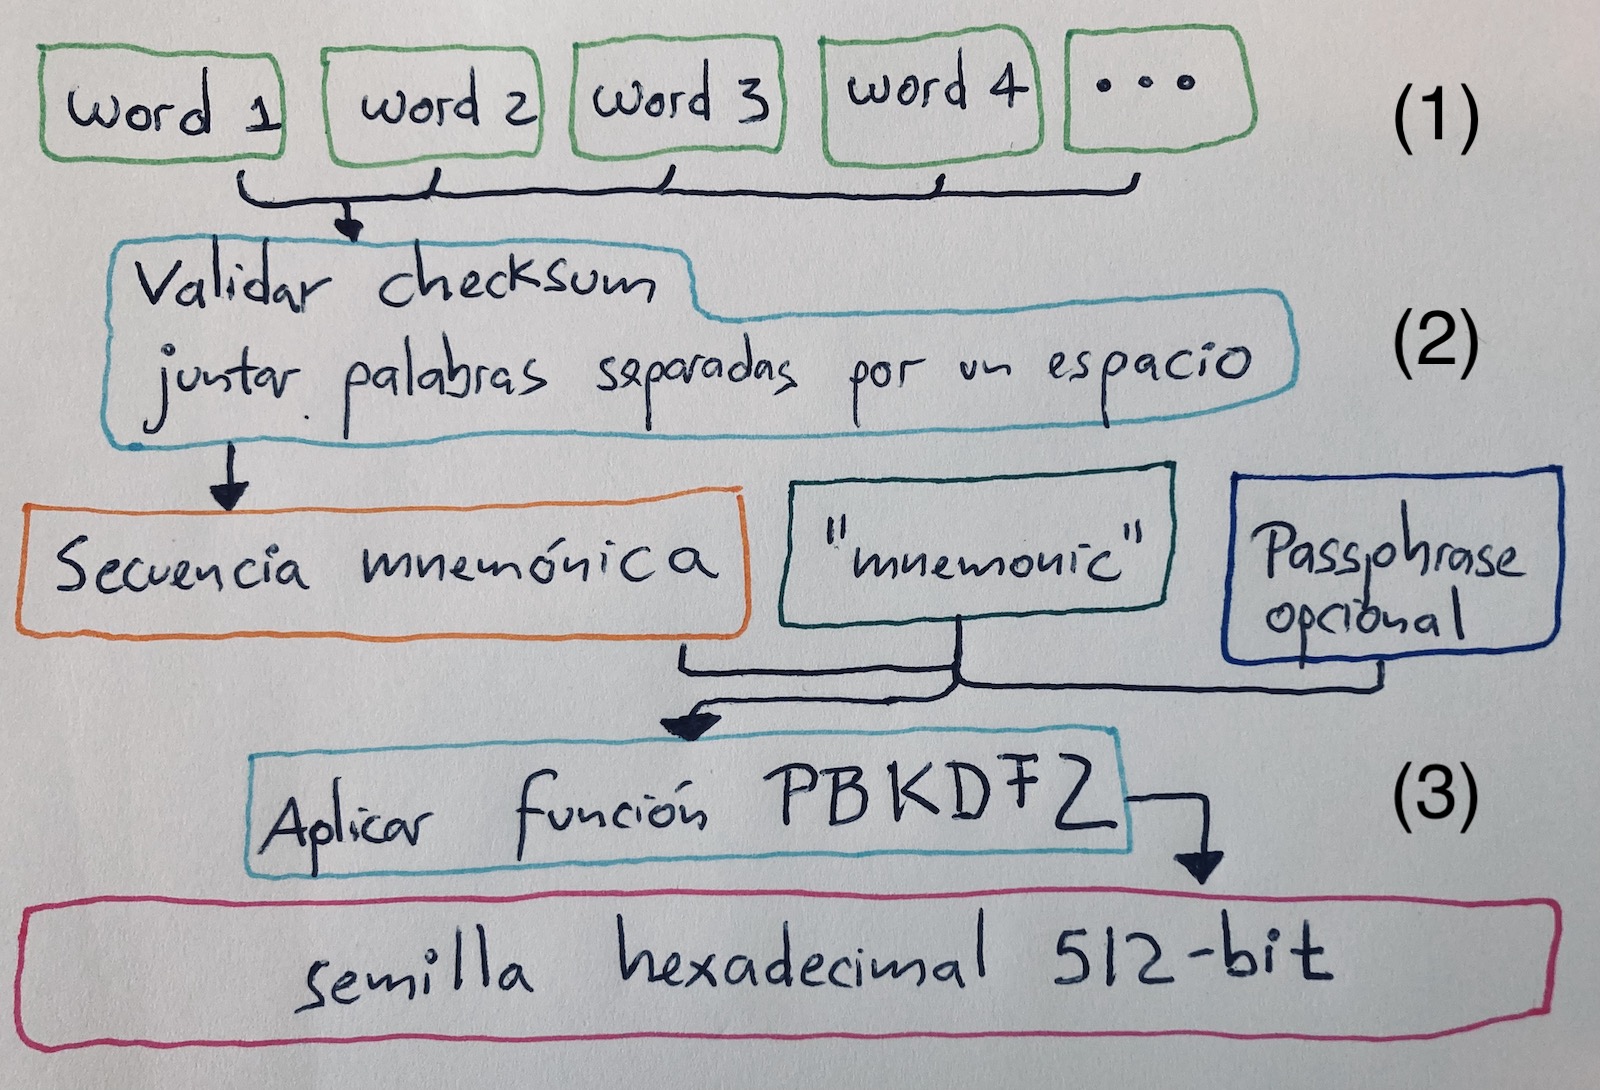 word 1 word 2 word 3 word 4 ... (1)
Validar checksum
juntar palabras separadas por un espacio (2)
Secuencia mnemónica "mnemonic" Passphrase
opcional
Aplicar función PBKDF2 (3)
semilla hexadecimal 512-bit